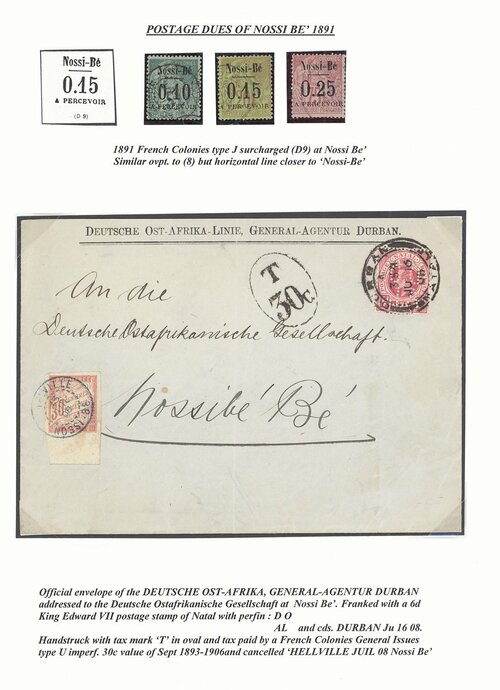 POSTAGE DUES OF NOSSI BE' 1891
Nossi-Bé
0.15
A PERCEVOIR
(D 9)
Nossi-Bé
0.10
A PERCEVOIR
Nossi-Bé
0.15
A PERCEVOIR
Nossi-Bé
0.25
A PERCEVOIR
1891 French Colonies type J surcharged (D9) at Nossi Be'
Similar ovpt. to (8) but horizontal line closer to 'Nossi-Be'
DEUTSCHE OST-AFRIKA-LINIE, GENERAL-AGENTUR DURBAN.
T
30c
DURBAN
An die
Deutsche Ostafrikanische Gesellschaft.
Nossibé Bé
30
Official envelope of the DEUTSCHE OST-AFRIKA, GENERAL-AGENTUR DURBAN
addressed to the Deutsche Ostafrikanische Gesellschaft at Nossi Be'. Franked with a 6d
King Edward VII postage stamp of Natal with perfin : D O
AL and cds. DURBAN Ju 16 08.
Handstruck with tax mark 'T' in oval and tax paid by a French Colonies General Issues
type U imperf. 30c value of Sept 1893-1906and cancelled 'HELLVILLE JUIL 08 Nossi Be'